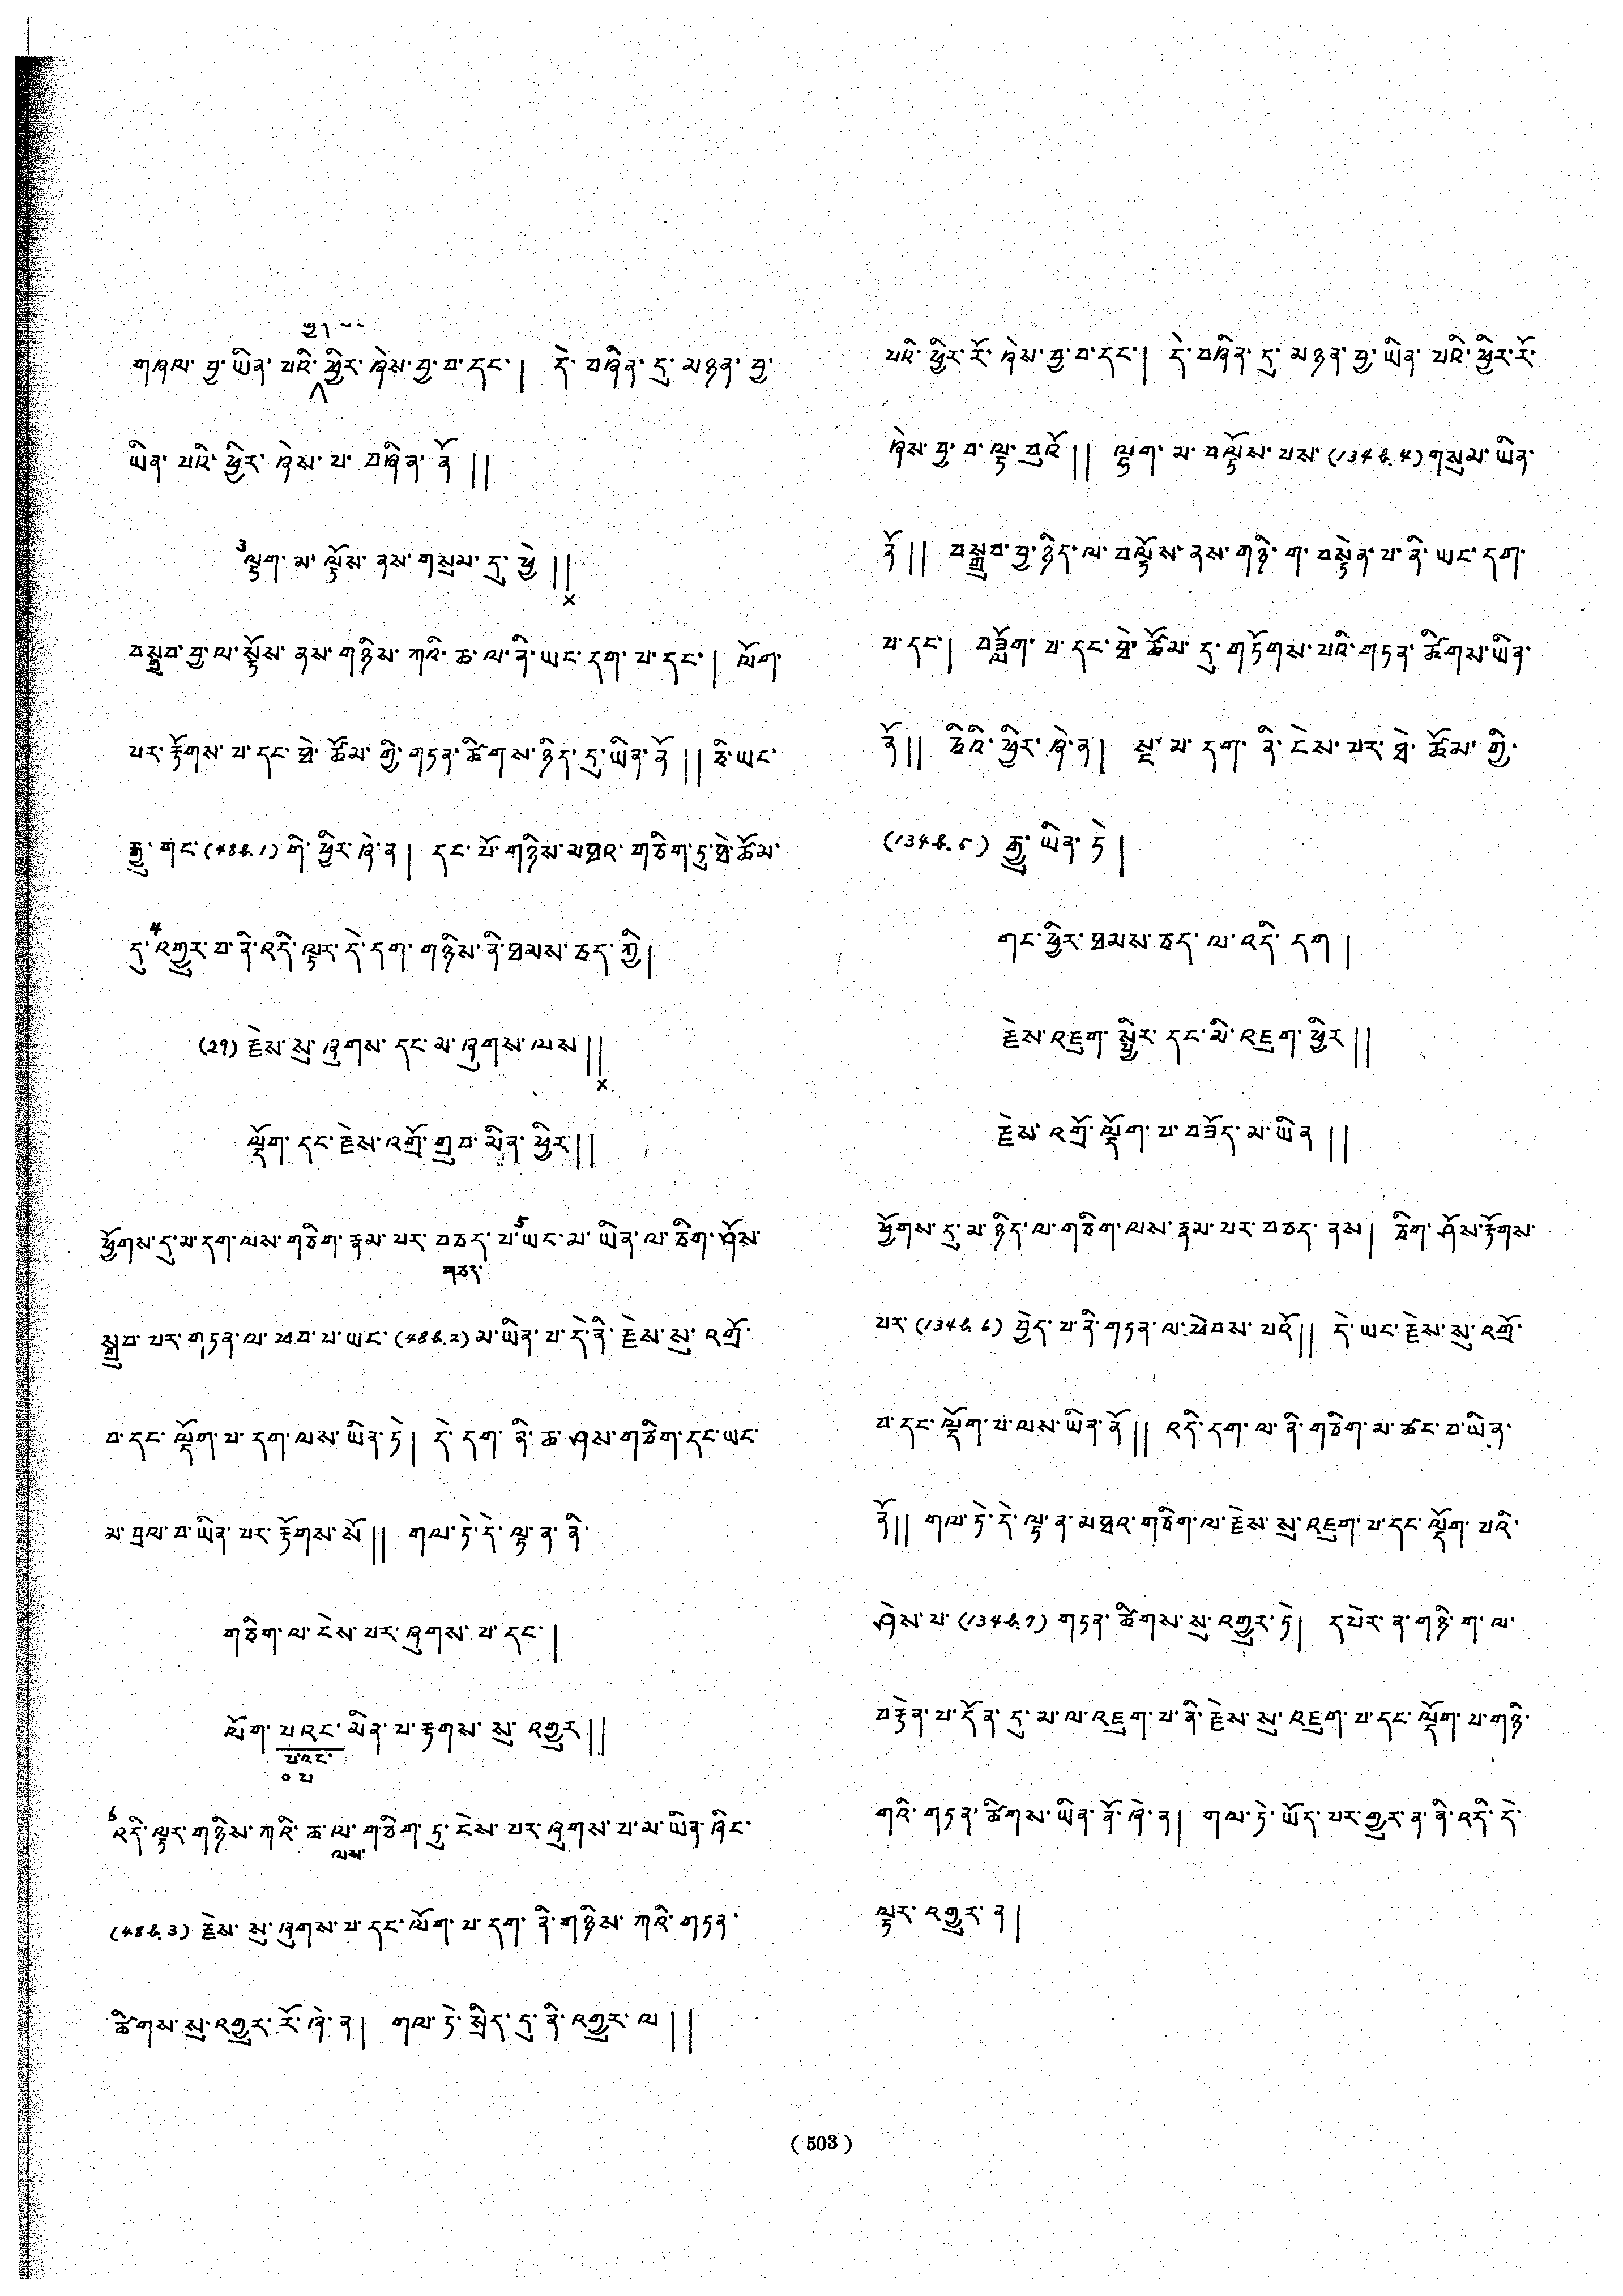 ༢། --
གཞལ་ བྱ་ ཡིན་ པའི་ ཕྱིར་ ཞེས་ བྱ་ བ་ དང་ །  དེ་ བཞིན་ དུ་ མཉན་ བྱ་
ཡིན་ པའི་ ཕྱིར་ ཞེས་ པ་ བཞིན་ ནོ ། །
3 ལྷག་ མ་ ལྟོས་ ནས་ གསུམ་ དུ་ ཕྱེ ། །
×
བསྒྲུབ་ བྱ་ ལ་ ལྟོས་ ནས་ གཉིས་ ཀའི་ ཆ་ ལ་ ནི་ ཡང་ དག་ པ་ དང་ །  ལོག་
པར་ རྟོགས་ པ་ དང་ ཐེ་ ཚོམ་ གྱི་ གཏན་ ཚིགས་ ཉིད་ དུ་ ཡིན་ ནོ ། ། ཅི་ ཡང་
རྒྱུ་ གང་ (48b.1) གི་ ཕྱིར་ ཞེ་ ན །  དང་ པོ་ གཉིས་ མཐའ་ གཅིག་ ཏུ་ ཐེ་ ཚོམ་
དུ་ 4 འགྱུར་ བ་ ནི་ འདི་ ལྟར་ དེ་ དག་ གཉིས་ ནི་ ཐམས་ ཅད་ ཀྱི །
(29) རྗེས་ སུ་ ཞུགས་ དང་ མ་ ཞུགས་ ལས ། །
×
ལྡོག་ དང་ རྗེས་ འགྲོ་ གྲུབ་ མིན་ ཕྱིར ། །
ཕྱོགས་ དུ་ མ་ དག་ ལས་ གཅིག་ རྣམ་ པར་ བཅད་ པ་ 5 ཡང་ མ་ ཡིན་ ལ་ ཅིག་ ཤོས་
གཅད་
སྒྲུབ་ པར་ གཏན་ ལ་ ཕབ་ པ་ ཡང་ (48b.2) མ་ ཡིན་ པ་ དེ་ ནི་ རྗེས་ སུ་ འགྲོ་
བ་ དང་ ལྡོག་ པ་ དག་ ལས་ ཡིན་ ཏེ །  དེ་ དག་ ནི་ ཆ་ ཤས་ གཅིག་ དང་ ཡང་
མ་ བྲལ་ བ་ ཡིན་ པར་ རྟོགས་ སོ ། །  གལ་ ཏེ་ དེ་ ལྟ་ ན་ ནི་
གཅིག་ ལ་ ངེས་ པར་ ཞུགས་ པ་ དང་ །
ལོག་ པའང་ མིན་ པ་ རྟགས་ སུ་ འགྱུར ། །
པ་འང་
༠ པ
6 འདི་ ལྟར་ གཉིས་ ཀའི་ ཆ་ ལ་ གཅིག་ ཏུ་ ངེས་ པར་ ཞུགས་ པ་ མ་ ཡིན་ ཞིང་
ལས་
(48b.3) རྗེས་ སུ་ ཞུགས་ པ་ དང་ ལོག་ པ་ དག་ ནི་ གཉིས་ ཀའི་ གཏན་
ཚིགས་ སུ་ འགྱུར་ རོ་ ཞེ་ ན །  གལ་ ཏེ་ སྲིད་ དུ་ ནི་ འགྱུར་ ལ ། །
པའི་ ཕྱིར་ རོ་ ཞེས་ བྱ་ བ་ དང་ །  དེ་ བཞིན་ དུ་ མཉན་ བྱ་ ཡིན་ པའི་ ཕྱིར་ རོ་
ཞེས་ བྱ་ བ་ ལྟ་ བུའོ ། །  ལྷག་ མ་ བལྟོས་ པས་ (134b.4) གསུམ་ ཡིན་
ནོ ། །  བསྒྲུབ་ བྱ་ ཉིད་ ལ་ བལྟོས་ ནས་ གཉི་ ག་ བསྟེན་ པ་ ནི་ ཡང་ དག་
པ་ དང་ །  བཟློག་ པ་ དང་ ཐེ་ ཚོམ་ དུ་ གཏོགས་ པའི་ གཏན་ ཚིགས་ ཡིན་
ནོ ། །  ཅིའི་ ཕྱིར་ ཞེ་ ན །  སྔ་ མ་ དག་ ནི་ ངེས་ པར་ ཐེ་ ཚོམ་ གྱི་
(134b.5) རྒྱུ་ ཡིན་ ཏེ །
གང་ ཕྱིར་ ཐམས་ ཅད་ ལ་ འདི་ དག །
རྗེས་ འཇུག་ སྤྱིར་ དང་ མི་ འཇུག་ ཕྱིར ། །
རྗེས་ འགྲོ་ ལྡོག་ པ་ བཟོད་ མ་ ཡིན ། །
ཕྱོགས་ དུ་ མ་ ཉིད་ ལ་ གཅིག་ ལས་ རྣམ་ པར་ བཅད་ ནས །  ཅིག་ ཤོས་ རྟོགས་
པར་ (134b.6) བྱེད་ པ་ ནི་ གཏན་ ལ་ ཕེབས་ པའོ ། །  དེ་ ཡང་ རྗེས་ སུ་ འགྲོ་
བ་ དང་ ལྡོག་ པ་ ལས་ ཡིན་ ནོ ། །  འདི་ དག་ ལ་ ནི་ གཅིག་ མ་ ཚང་ བ་ ཡིན་
ནོ ། །  གལ་ ཏེ་ དེ་ ལྟ་ ན་ མཐའ་ གཅིག་ ལ་ རྗེས་ སུ་ འཇུག་ པ་ དང་ ལྡོག་ པའི་
ཤེས་ པ་ (134b.7) གཏན་ ཚིགས་ སུ་ འགྱུར་ ཏེ །  དཔེར་ ན་ གཉི་ ག་ ལ་
བརྟེན་ པ་ དོན་ དུ་ མ་ ལ་ འཇུག་ པ་ ནི་ རྗེས་ སུ་ འཇུག་ པ་ དང་ ལྡོག་ པ་ གཉི་
གའི་ གཏན་ ཚིགས་ ཡིན་ ནོ་ ཞེ་ ན །  གལ་ ཏེ་ ཡོད་ པར་ གྱུར་ ན་ ནི་ འདི་ དེ་
ལྟར་ འགྱུར་ ན །
( 503 )